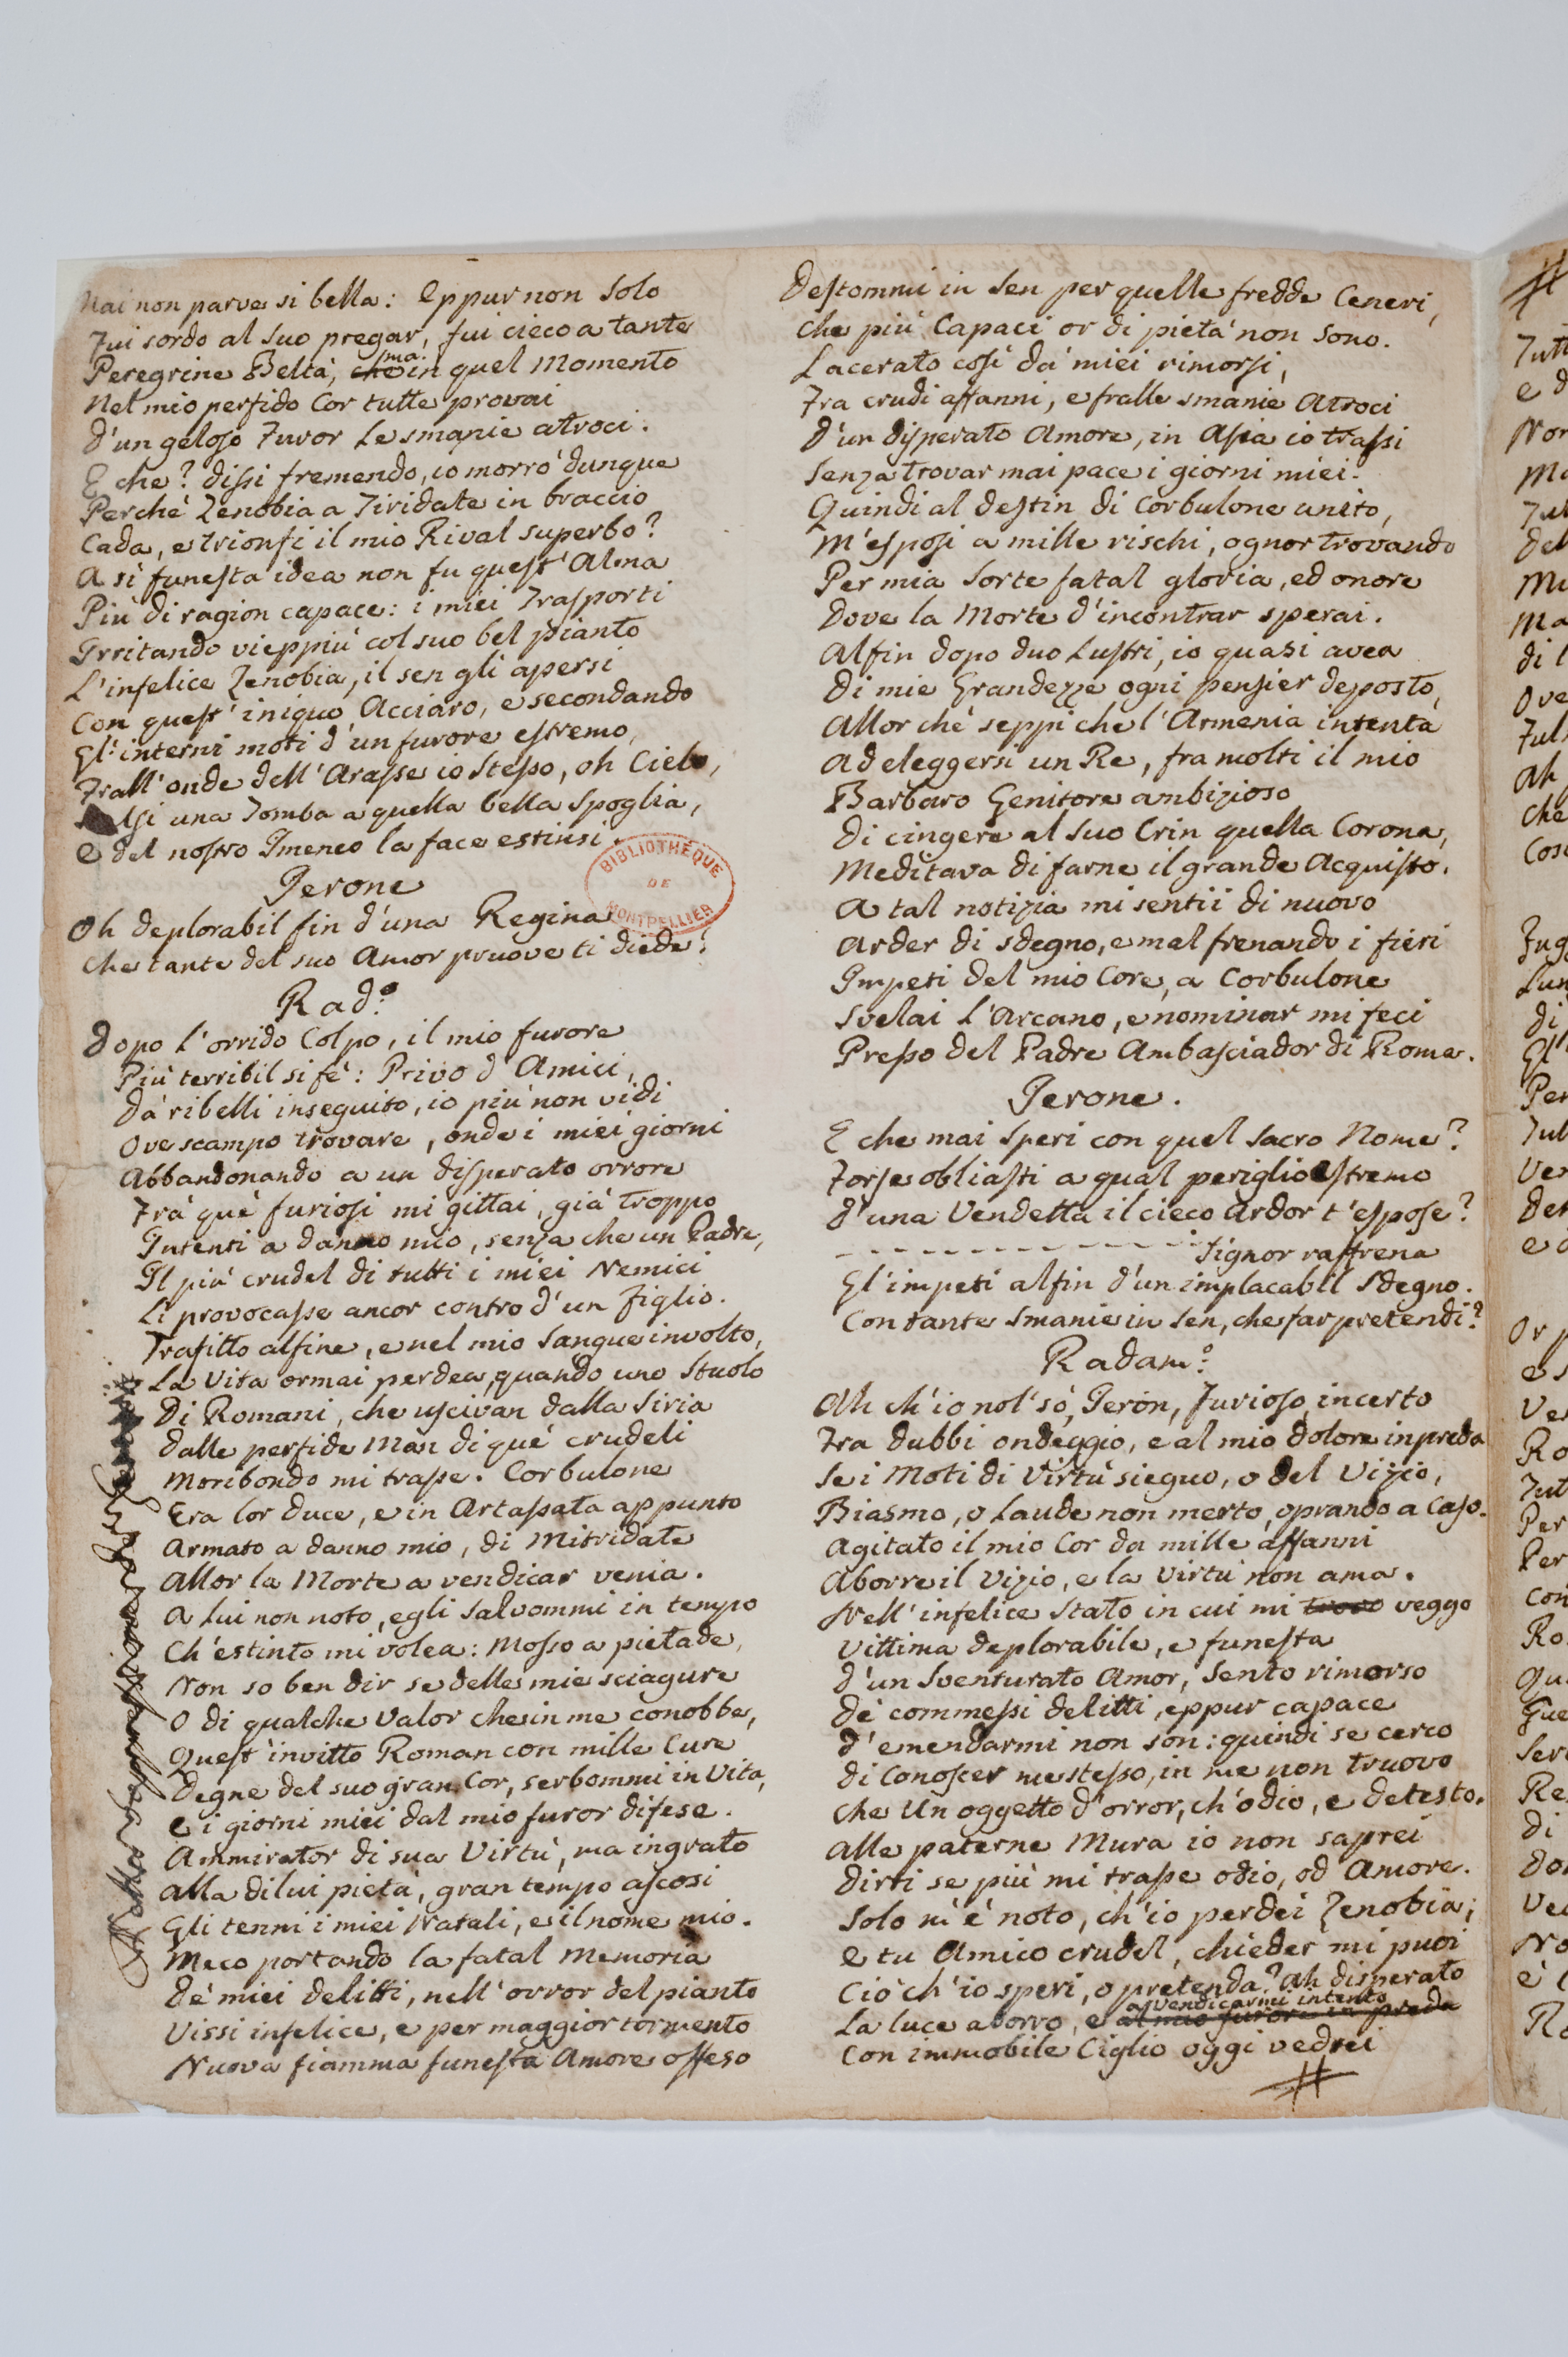 Mai non parve si bella: Eppur non solo
Fui sordo al suo pregar, fui cieco a tante
Peregrine Beltà, che ma in quel Momento
Nel mio perfido Cor tutte provai
D'un geloso Furor Le smanie atroci.
E che? dissi fremendo, io morrò dunque
Perchè Zenobia a Tiridate in braccio
Cada, e trionfi il mio Rival superbo?
A sì funesta idea non fu quest'Alma
Più di ragion capace: i miei Trasporti
Irritando vieppiù col suo bel pianto
L'infelice Zenobia, il sen gli apersi
Con quest'iniquo Acciaro, e secondando
Gl'interni moti d'un furore estremo,
Frall'onde dell'Arasse io stesso, oh Cielo,
una Tomba a quella bella Spoglia,
E del nostro Imeneo la face estinsi.
BIBLIOTHÈQUE DE MONTPELLIER
Jerone
Oh deplorabil fin d'una Regina
Che tante del suo Amor pruove ti diede!
Rad.º
Dopo l'orrido Colpo, il mio furore
Più terribil si fè: Privo d'Amici,
Da' ribelli inseguito, io più non vidi
Ove scampo trovare, onde i miei giorni
Abbandonando a un disperato orrore
Frà què furiosi mi gittai, già troppo
Intenti a danno mio, senza che un Padre,
Il più crudel di tutti i miei Nemici
Li provocasse ancor contro d'un figlio.
Trafitto alfine, e nel mio Sangue involto,
La Vita ormai perdea, quando uno Stuolo
Di Romani, che uscivan dalla Siria
Dalle perfide Man di què crudeli
Moribondo mi trasse. Corbulone
Era lor duce, e in Artassata appunto
Armato a danno mio, di Mitridate
Allor la Morte a vendicar venia.
A Lui non noto, egli salvommi in tempo
Ch'estinto mi volea: Mosso a pietade,
Non so ben dir se delle mie sciagure
O di qualche Valor che in me conobbe,
Quest'invitto Roman con mille Cure
Degne del suo gran Cor, serbommi in Vita,
E i giorni miei dal mio furor difese.
Ammirator di sua Virtù, ma ingrato
Alla di lui pietà, gran tempo ascosi
Gli tenni i miei Natali, e il nome mio.
Meco portando la fatal Memoria
Dè miei delitti, nell'orror del pianto
Vissi infelice, e per maggior tormento
Nuova fiamma funesta Amore offeso
Destommi in Sen per quelle fredde Ceneri,
Che più Capaci or di pietà non sono.
Lacerato così da' miei rimorsi,
Fra crudi affanni, e fralle smanie Atroci
D'un disperato Amore, in Asia io trassi
Senza trovar mai pace i giorni miei.
Quindi al destin di Corbulone unito,
M'esposi a mille rischi, ognor trovando
Per mia Sorte fatal gloria, ed onore
Dove la Morte d'incontrar sperai.
Alfin dopo duo Lustri, io quasi avea
Di mie Grandezze ogni pensier deposto,
Allor chè seppi che l'Armenia intenta
Ad eleggersi un Re, fra molti il mio
Barbaro Genitore ambizioso
Di cingere al suo Crin quella Corona,
Meditava di farne il grande Acquisto.
A tal notizia mi sentii di nuovo
Arder di sdegno, e mal frenando i fieri
Impeti del mio Core, a Corbulone
Svelai L'Arcano, e nominar mi feci
Presso del Padre Ambasciador di Roma.
Jerone.
E che mai speri con quel sacro Nome?
Forse obliasti a qual periglio estremo
D'una Vendetta il cieco Ardor t'espose?
- - - - - - - - - - - - Signor raffrena
Gl'impeti alfin d'un implacabil Sdegno.
Con tante Smanie in Sen, che far pretendi?
Radam.º
Ah ch'io nol' sò, Jeron, Furioso, incerto
Fra dubbi ondeggio, e al mio dolore in preda
Se i Moti di Virtù sieguo, o del Vizio,
Biasmo, o Laude non merto, oprando a Caso.
Agitato il mio Cor da mille affanni
Aborre il Vizio, e la Virtù non ama.
Nell'infelice Stato in cui mi trovo veggo
Vittima deplorabile, e funesta
D'un Sventurato Amor, Sento rimorso
De' commessi delitti, eppur capace
D'emendarmi non son: quindi se cerco
Di Conoscer me stesso, in me non truovo
Che Un oggetto d'orror, ch'odio, e detesto.
Alle paterne Mura io non saprei
Dirti se più mi trasse odio, od Amore.
Solo m'è noto, ch'io perdei Zenobia;
E tu Amico crudel, chieder mi puoi
Ciò ch'io speri, o pretenda? Ah disperato
a Vendicarmi intento
La luce aborro, e al mio furore in preda
Con immobile Ciglio oggi vedrei